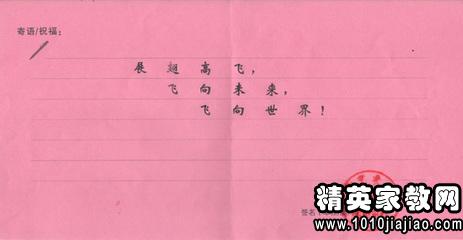 寄语/祝福:
展翅高飞,
飞向未来,
飞向世界!
签名
精英家教网
www.1010jiajiao.com